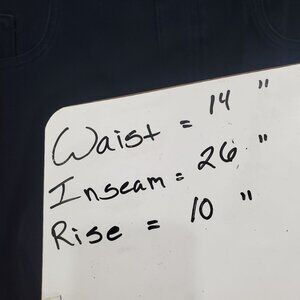 Waist = 14 "
Inseam = 26 "
Rise = 10 "